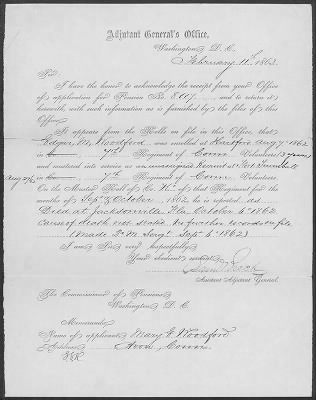 Adjutant General's Office,
Washington D. C.
February 11th, 1863.
Sir,
I have the honor to acknowledge the receipt from your Office
of application for Pension No. and to return it
herewith, with such information as is furnished by the files of this
Office.
It appears from the Rolls on file in this Office, that
Edgar M. Woodford, was enrolled at Hartford Aug 7th 1862
in 7th Regiment of Conn Volunteers (3 years)
and mustered into service as a Recruit at Fort Trumbull
Aug in 7th Regiment of Conn. Volunteers.
On the Muster Roll of Co. of that Regiment for the
months of Sept & October 1862 he is reported as
Died at Jacksonville Fla October 6th 1862
cause of death not stated. No further records on file
(made Sergt Sept 6th 1862)
I am Sir very respectfully
Your obedient servant
Assistant Adjutant General.
The Commissioner of Pensions
Washington D. C.
Memoranda:
Name of applicant, Mary Woodford
Address, Avon, Conn.